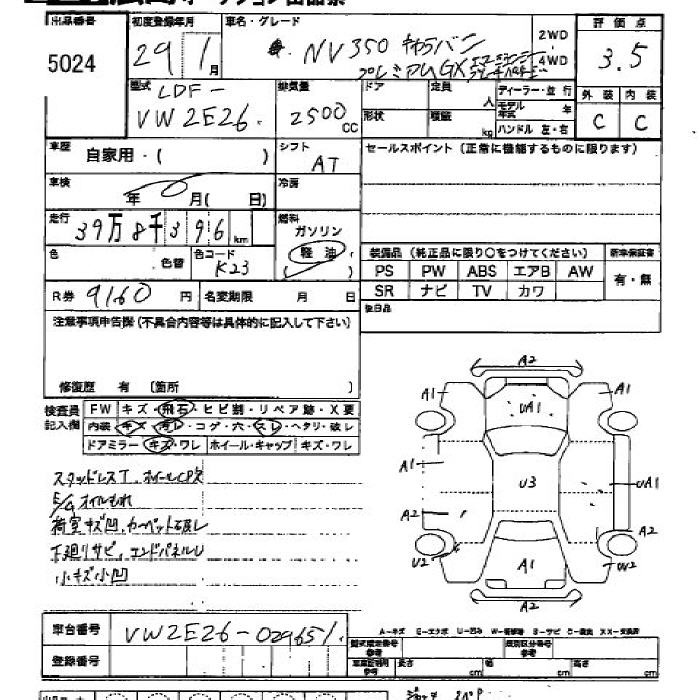 出品番号
5024
初度登録年月
29 1 月
車名・グレード
NV350 キャラバン
プレミアムGX
2WD
4WD
評価点
3.5
外装 内装
C C
型式
LDF-
VW2E26
排気量
2500 CC
ドア
形状
定員 人
積載 kg
ディーラー・並行
モデル年式 年
ハンドル 左・右
車歴
自家用・( )
シフト
AT
セールスポイント (正常に機能するものに限ります)
車検
年 月( 日)
冷房
走行
39万8千396 km
燃料
ガソリン
軽油
( )
色
色替
色コード
K23
装備品 (純正品に限り○をつけてください)
新車保証書
PS PW ABS エアB AW
SR ナビ TV カワ
有・無
R券 9160 円
名変期限 月 日
後日品
注意事項申告欄 (不具合内容等は具体的に記入して下さい)
修復歴 有 (箇所
検査員記入欄
FW キズ・飛石・ヒビ割・リペア跡・X要
内装 キズ・汚レ・コゲ・穴・スレ・ヘタリ・破レ
ドアミラー キズ・ワレ ホイール・キャップ キズ・ワレ
スタッドレスT、ホイールCP欠
E/gオイルもれ
荷室キズ凹、カーペット破レ
下廻リサビ、エンドパネルU
小キズ小凹
A2
A1 A1
UA1
A1
U3
UA1
A2 A2
U2 A1 W2
A2
車台番号
VW2E26-029651
登録番号
A-キズ E-エクボ U-凹み W-補修跡 S-サビ C-腐食 XX-交換済
型式指定番号
類別区分番号
長さ cm 幅 cm 高さ cm